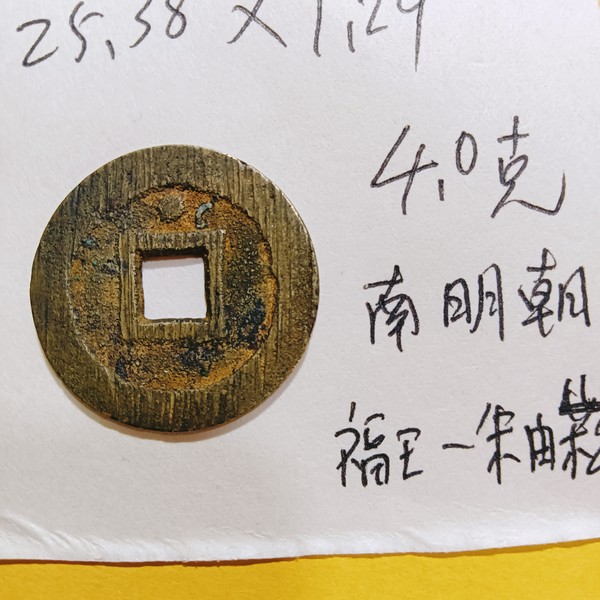 25.58 × 1.29
4.0克
南明朝
福王一朱由崧